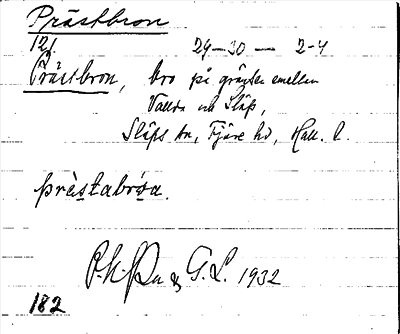 Prästbron
121. 29-30 — 2-4
Prästbron, bro på gränsen emellan
Vallda och Släp,
Släps sn, Fjäre hd, Hall. l.
prèstabróa.
& G. L. 1932
182